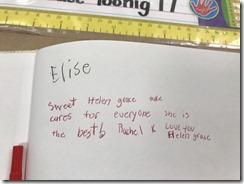 Elise
Sweet Helen grace
cares for everyone she is
the best! Rachel & Love you
Helen grace